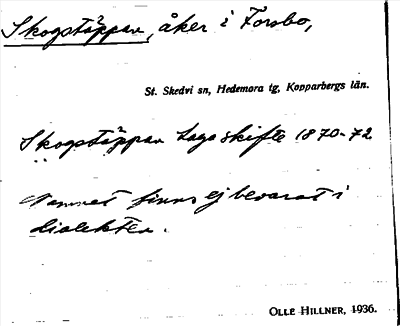 Skogstäppan, åker i Forsbo,
St. Skedvi sn, Hedemora tg, Kopparbergs län.
Skogstäppan Laga skifte 1870-72
Namnet finns ej bevarat i
dialekten.
OLLE HILLNER, 1936.